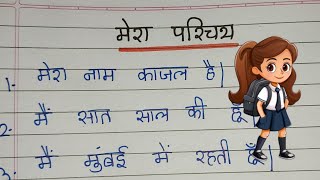 मेरा परिचय
1- मेरा नाम काजल है|
2- मैं सात साल की हूँ|
3- मैं मुंबई में रहती हूँ|